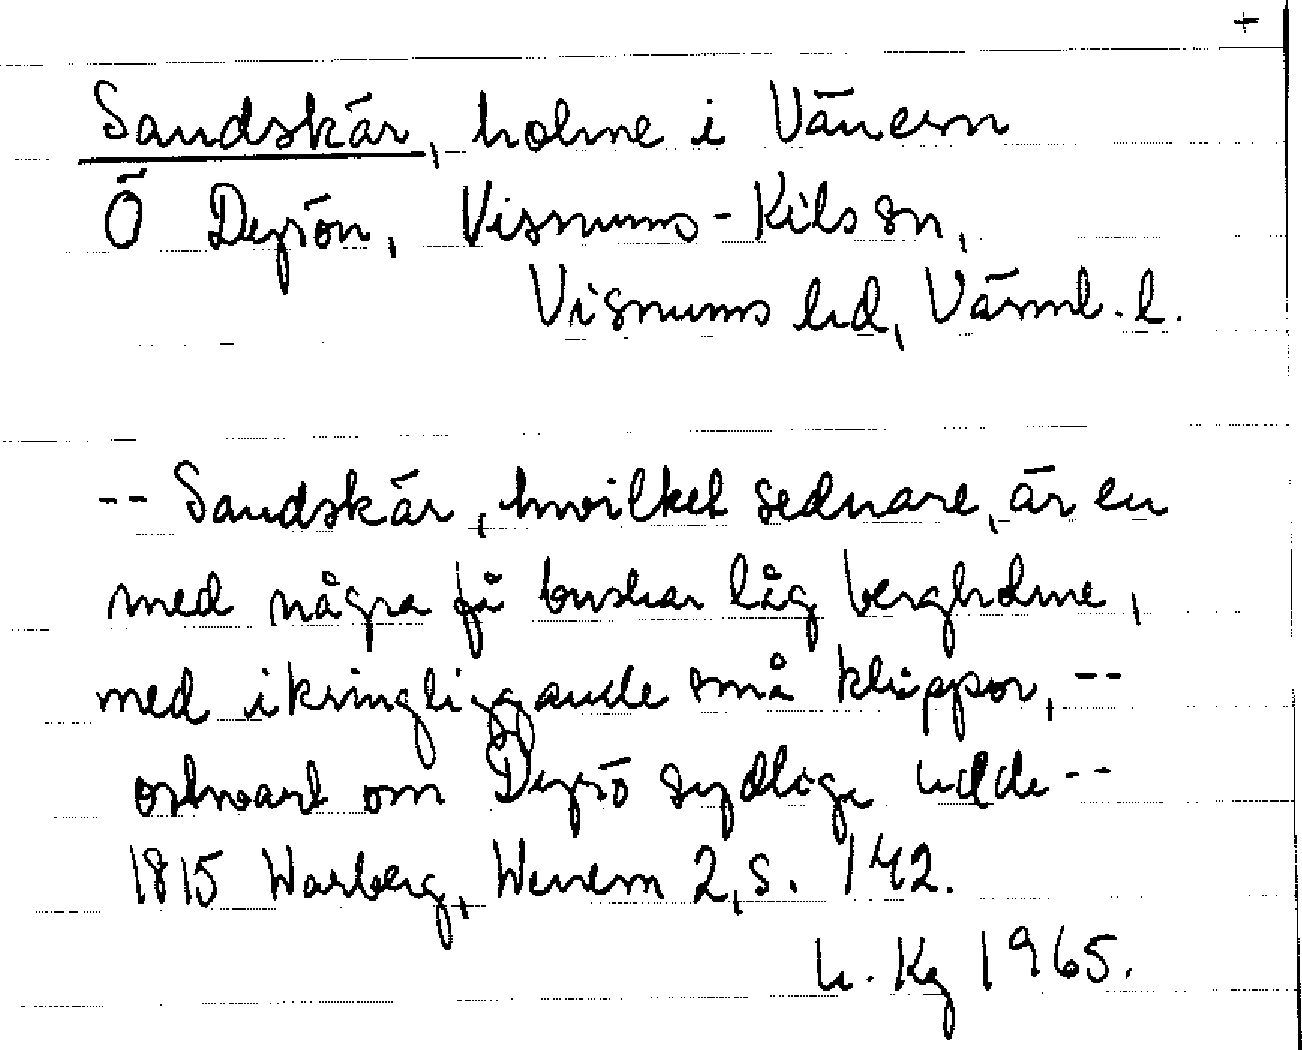 +
Sandskär, holme i Vänern
Ö Dejrön, Visnums-Kils sn,
Visnums hd, Värml. l.
-- Sandskär, hvilket sednare, är en
med några få buskar låg bergholme,
med ikringliggande små klippor, --
ostvart om Dejrö sydliga udde --
1815 Warberg, Wenern 2, s. 142.
L. Kg 1965.